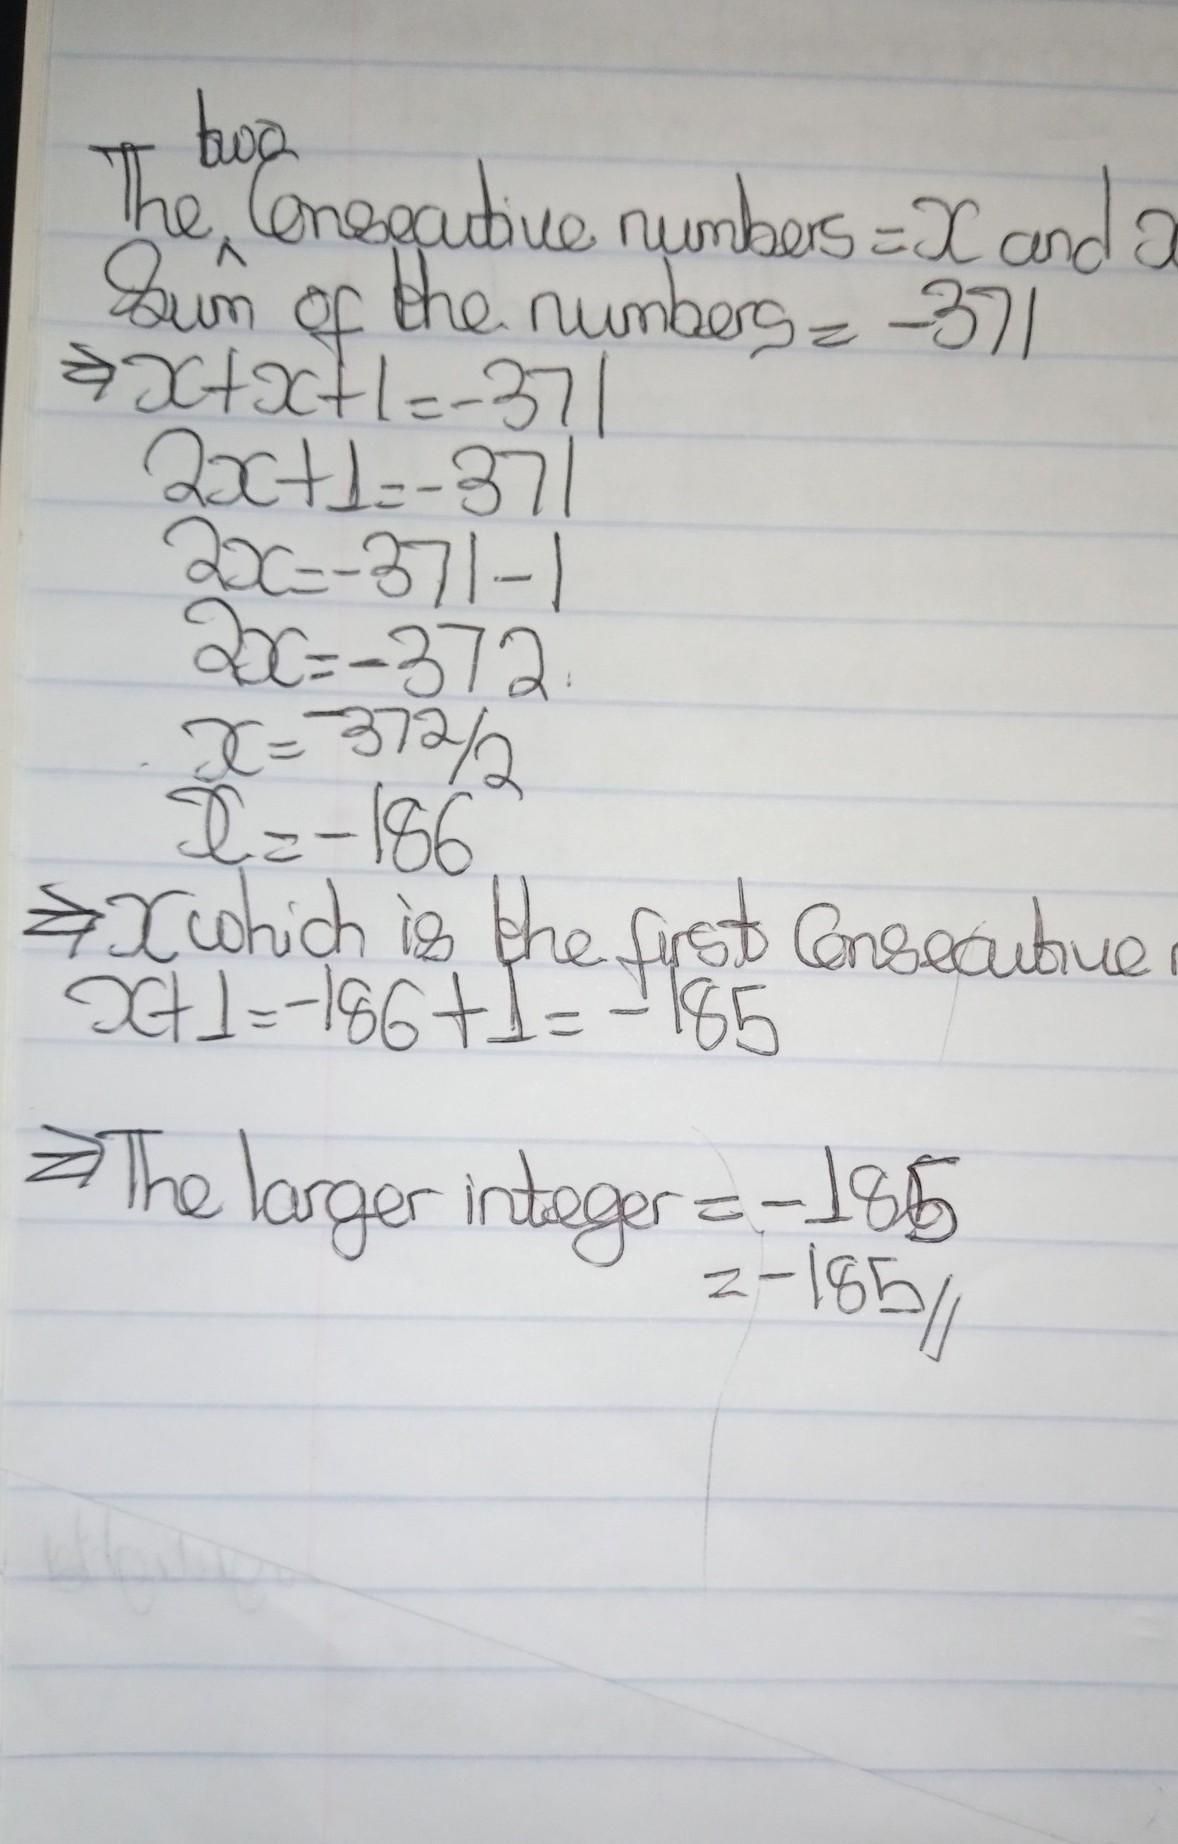 two
The ^ Consecutive numbers = x and x
Sum of the numbers = -371
⇒ x+x+1=-371
2x+1=-371
2x=-371-1
2x=-372
x=-372/2
x=-186
⇒ x which is the first Consecutive
x+1=-186+1=-185
⇒ The larger integer = -185
= -185//